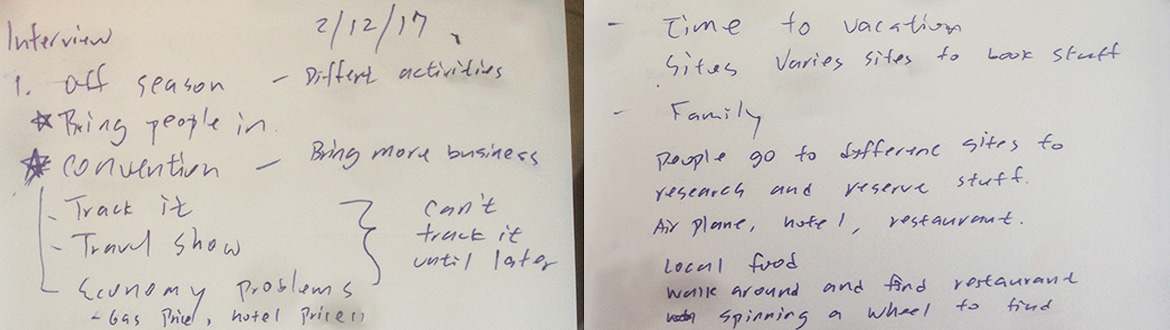 Interview 2/12/17
1. Off season - Differt activities
Bring people in.
Convention - Bring more business
- Track it
- Travel show
Economy problems
- Gas Price, hotel prices
can't
track it
until later
- Time to vacation
Sites Varies sites to book stuff
- Family
People go to different sites to
research and reserve stuff.
Air plane, hotel, restaurant.
Local food
Walk around and find restaurant
spinning a wheel to find